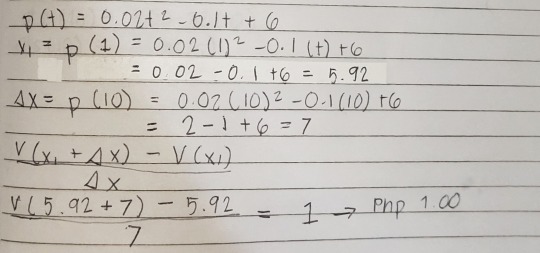 p(t) = 0.02t² - 0.1t + 6
x₁ = p(1) = 0.02(1)² - 0.1(t) + 6
= 0.02 - 0.1 + 6 = 5.92
Δx = p(10) = 0.02(10)² - 0.1(10) + 6
= 2 - 1 + 6 = 7
V(x₁ + Δx) - V(x₁)
Δx
V(5.92 + 7) - 5.92 = 1 → Php 1.00
7